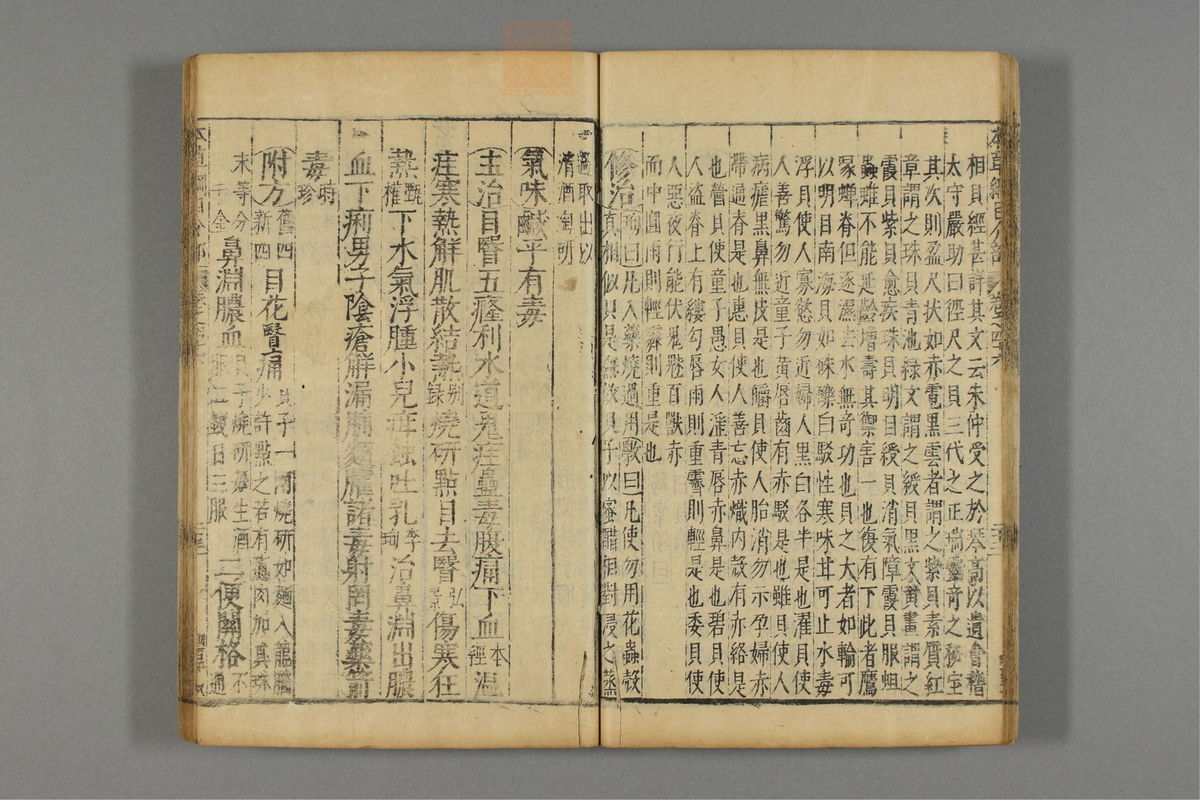 相貝經甚詳其文云朱仲受之於琴高以遺會稽
太守嚴助曰徑尺之貝三代之正瑞靈奇之秘宝
其次則盈尺狀如赤電黒雲者謂之紫貝素質紅
章謂之珠貝青池緑文謂之綬貝黒文黄畫謂之
霞貝紫貝愈疾珠貝明目綬貝消氣障霞貝服蛆
蟲雖不能延齡增壽其禦害一也復有下此者鷹
喙蟬脊但逐濕去水無奇功也貝之大者如輪可
以明目南海貝如硃礫白駁性寒味甘可止水毒
浮貝使人寡慾勿近婦人黒白各半是也濯貝使
人善驚勿近童子黄唇齒有赤駁是也雖貝使人
病瘧黒鼻無皮是也䏿貝使人胎消勿示孕婦赤
帶通脊是也惠貝使人善忘赤熾内殻有赤絡是
也䁝貝使童子愚女人淫青唇赤鼻是也碧貝使
人盗脊上有縷勾唇雨則重霽則輕是也委貝使
人惡夜行能伏鬼魅百獸赤
而中圓雨則輕霽則重是也
修治珣曰凡入藥燒過用斅曰凡使勿用花蟲殻
真相似只是無效貝子以蜜醋相對浸之蒸
過取出以
清酒淘研
氣味鹹平有毒
主治目瞖五癃利水道鬼疰蠱毒腹痛下血本經温
疰寒熱解肌散結熱别録燒研點目去瞖弘景傷寒狂
熱甄權下水氣浮腫小兒疳蝕吐乳李珣治鼻淵出膿
血下痢男子陰瘡解漏脯麪臛諸毒射罔毒藥箭
毒時珍
附方舊四新四目花瞖痛貝子一兩燒研如麪入龍腦
少許點之若有瘜肉加真珠
末等分千金鼻淵膿血貝子燒研每生酒
服二錢日三服二便關格不通